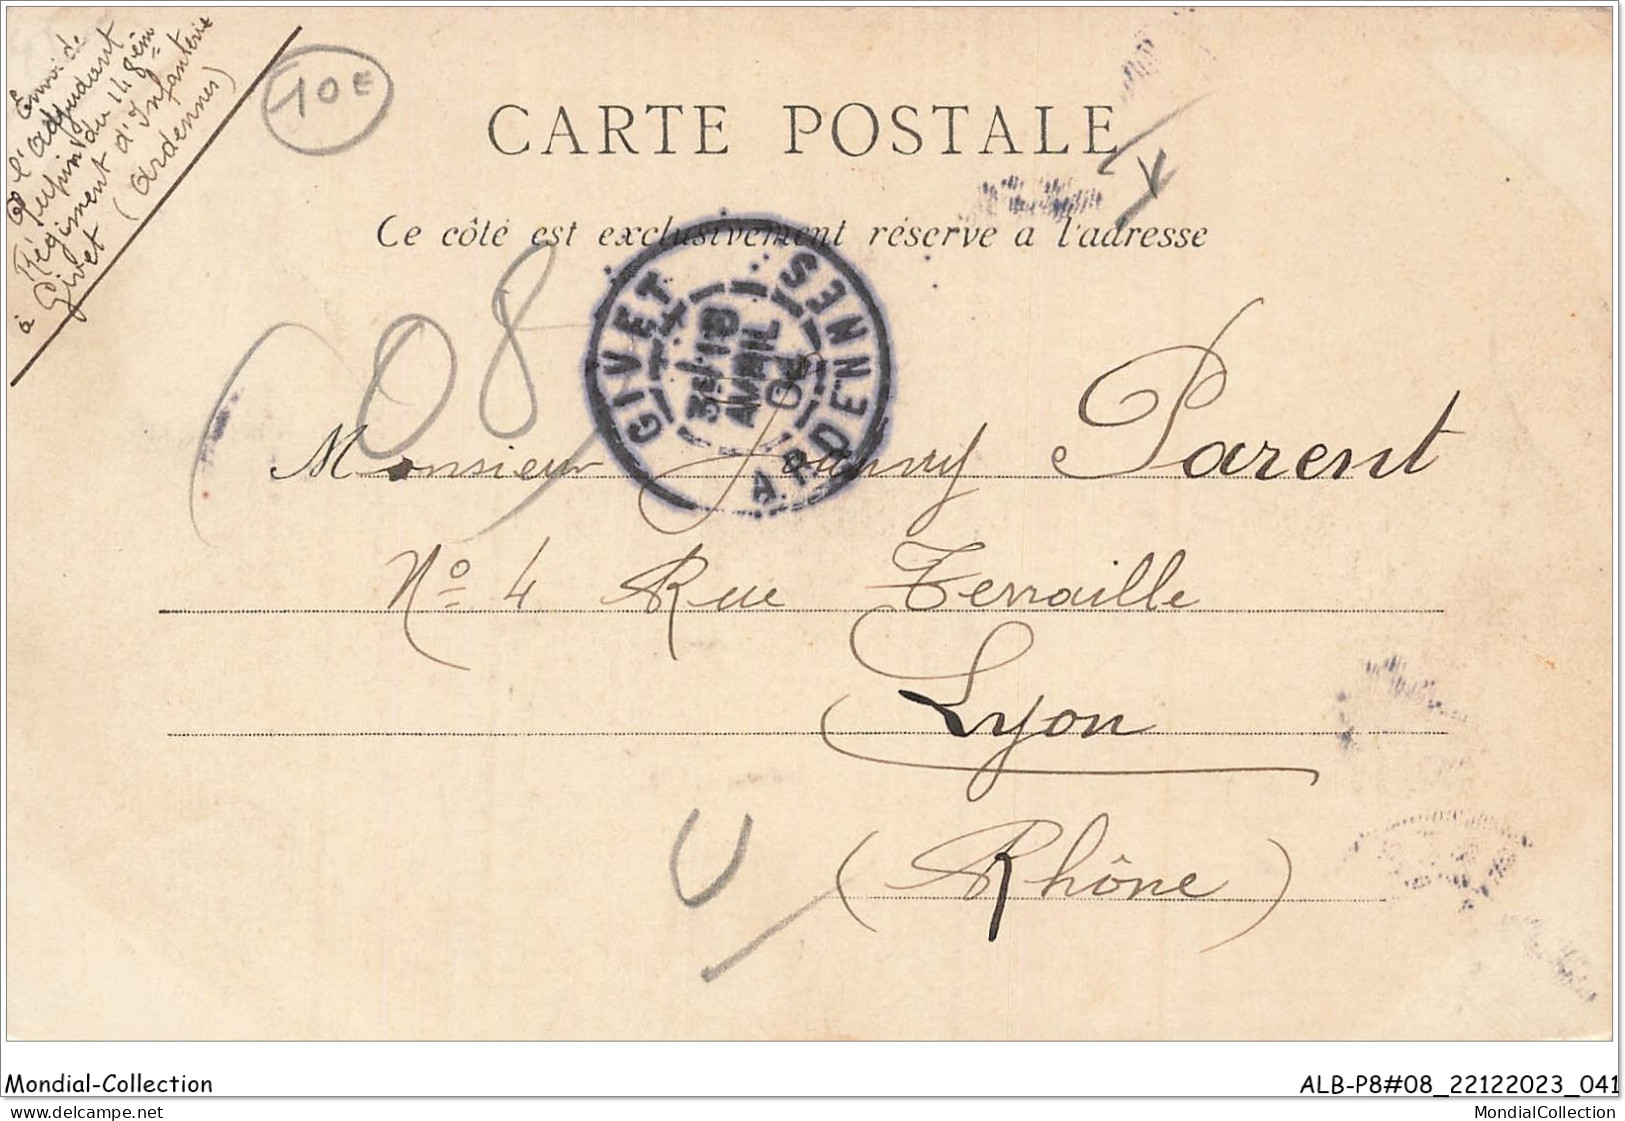 Envoi de
l'adjudant
du 148 ème
Régiment d'Infanterie
à Givet (Ardennes)
10€
CARTE POSTALE
Ce côté est exclusivement réservé a l'adresse
08
GIVET
ARDENNES
AVRIL
02
Monsieur Joanny Parent
No 4 Rue Terraille
Lyon
(Rhône)
Mondial-Collection
ALB-P8#08_22122023_041
MondialCollection